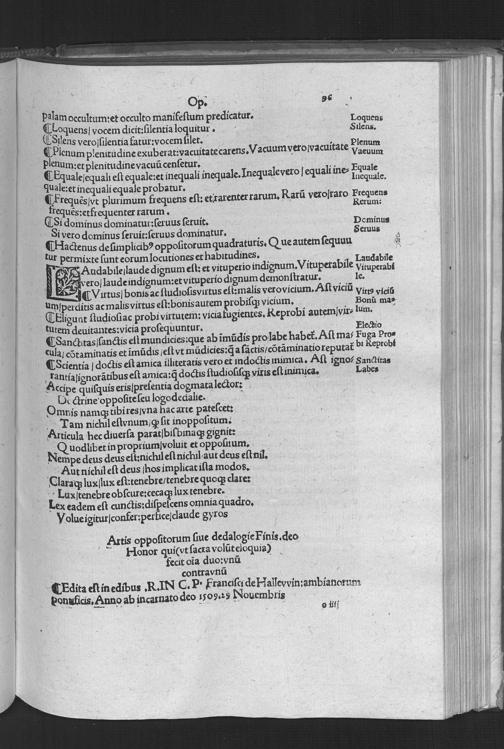 Op. 96
palam occultum: et occulto manifestum predicatur.
¶Loquens/ vocem dicit: silentia loquitur.
Loquens
Silens.
¶Silens vero/ silentia fatur: vocem silet.
¶Plenum plenitudine exuberat: vacuitate carens. Vacuum vero/ vacuitate
Plenum
Vacuum
plenum: et plenitudine vacuū censetur.
¶Equale/ equali est equale: et inequali inequale. Inequale vero/ equali ine-
Equale
Inequale.
quale: et inequali equale probatur.
¶Frequēs/ vt plurimum frequens est: et rarenter rarum. Rarū vero/ raro
Frequens
Rarum:
frequēs: et frequenter rarum.
¶Si dominus dominatur: seruus seruit.
Dominus
Seruus
Si vero dominus seruit: seruus dominatur.
¶Hactenus de simplicibꝰ oppositorum quadraturis. Que autem sequuu
tur permixte sunt eorum locutiones et habitudines.
LAudabile/ laude dignum est: et vituperio indignum. Vituperabile
Laudabile
Vituperabi
le.
vero/ laude indignum: et vituperio dignum demonstratur.
¶Virtus/ bonis ac studiosis virtus est: malis vero vicium. Ast viciū
Virtꝰ viciū
Bonū ma-
lum.
um/ perditis ac malis virtus est: bonis autem probisq; vicium.
¶Eligunt studiosi ac probi virtutem: vicia fugientes. Reprobi autem/ vir-
Electio
Fuga Pro-
bi Reprobi
tutem deuitantes: vicia prosequuntur.
¶Sanctitas/ sanctis est mundicies: que ab imūdis pro labe habet᷑. Ast ma-
cula/ cōtaminatis et imūdis/ est vt mūdicies: q̄ a sāctis/ cōtāminatio reputat᷑
¶Scientia/ doctis est amica illiteratis vero et indoctis inimica. Ast igno-
Sanctitas
Labes
rantia/ ignorātibus est amica: q̄ doctis studiosisq; viris est inimica.
Accipe quisquis eris/ presentia dogmata lector:
Doctrine opposite seu logodedalie.
Omnis namq; tibi res/ vna hac arte patescet:
Tam nichil est vnum/ q; sit inoppositum.
Articula hec diuersa parat/ bis binaq; gignit:
Quodlibet in proprium/ voluit et oppositum.
Nempe deus deus est: nichil est nichil aut deus est nil.
Aut nichil est deus/ hos implicat ista modos.
Claraq; lux/ lux est: tenebre/ tenebre quoq; clare:
Lux/ tenebre obscure: cecaq; lux tenebre.
Lex eadem est cunctis: dispescens omnia quadro.
Volue igitur/ confer: perfice/ claude gyros
Artis oppositorum siue dedalogie Finis. deo
Honor qui (vt sacra volūt eloquia)
fecit oīa duo: vnū
contra vnū
¶Edita est in edibus .R. IN C. P. Francisci de Hallewin: ambianorum
pontificis. Anno ab incarnato deo 1509. 29 Nouembris
o iiij